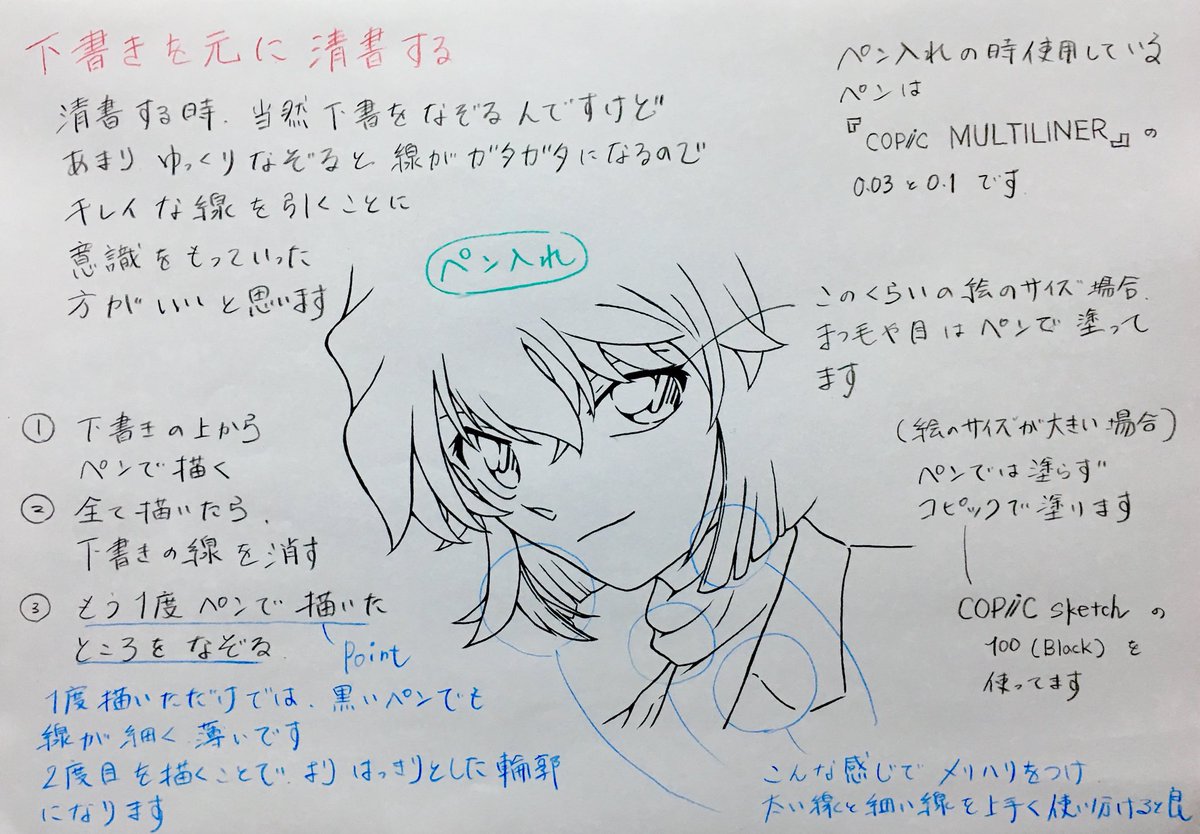 下書きを元に清書する
清書する時、当然下書をなぞるんですけど
あまりゆっくりなぞると線がガタガタになるので
キレイな線を引くことに
意識をもっていった
方がいいと思います
ペン入れ
ペン入れの時使用している
ペンは
『COPiC MULTILINER』の
0.03と0.1です
このくらいの絵のサイズ場合、
まつ毛や目はペンで塗って
ます
(絵のサイズが大きい場合)
ペンでは塗らず
コピックで塗ります
COPiC sketchの
100(Black)を
使ってます
① 下書きの上から
ペンで描く
② 全て描いたら、
下書きの線を消す
③ もう1度ペンで描いた
ところをなぞる
Point
1度描いただけでは、黒いペンでも
線が細く薄いです
2度目を描くことで、よりはっきりとした輪郭
になります
こんな感じでメリハリをつけ
太い線と細い線を上手く使い分けると良